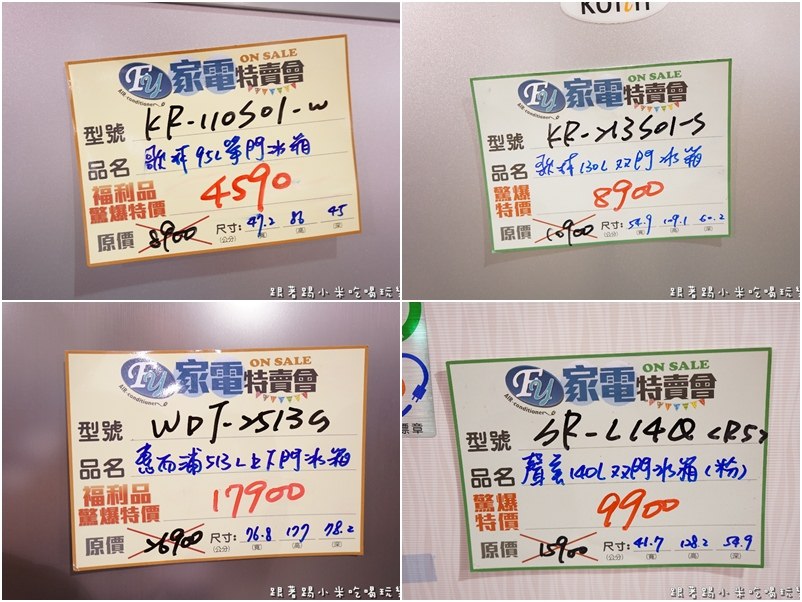 ON SALE
Fy 家電特賣會
AIR conditioner
型號 KR-110S01-W
品名 歌林95L單門冰箱
福利品
驚爆特價 4590
原價 8900 尺寸: 47.2 86 45
(公分) (寬) (高) (深)
跟著踢小米吃喝玩樂
KOLIN
ON SALE
Fy 家電特賣會
AIR conditioner
型號 KR-213S01-S
品名 歌林130L双門冰箱
驚爆
特價 8900
原價 10900 尺寸: 54.9 109.1 60.2
(公分) (寬) (高) (深)
跟著踢小米吃喝玩
ON SALE
Fy 家電特賣會
AIR conditioner
型號 WDT-2513G
品名 惠而浦513L上下門冰箱
福利品
驚爆特價 17900
原價 26900 尺寸: 76.8 177 78.2
(公分) (寬) (高) (深)
跟著踢小米吃喝玩
標章
ON SALE
Fy 家電特賣會
AIR conditioner
型號 SR-L14Q<R5>
品名 聲寶140L双門冰箱(粉)
驚爆
特價 9900
原價 15900 尺寸: 41.7 128.2 54.9
(公分) (寬) (高) (深)
跟著踢小米吃喝玩